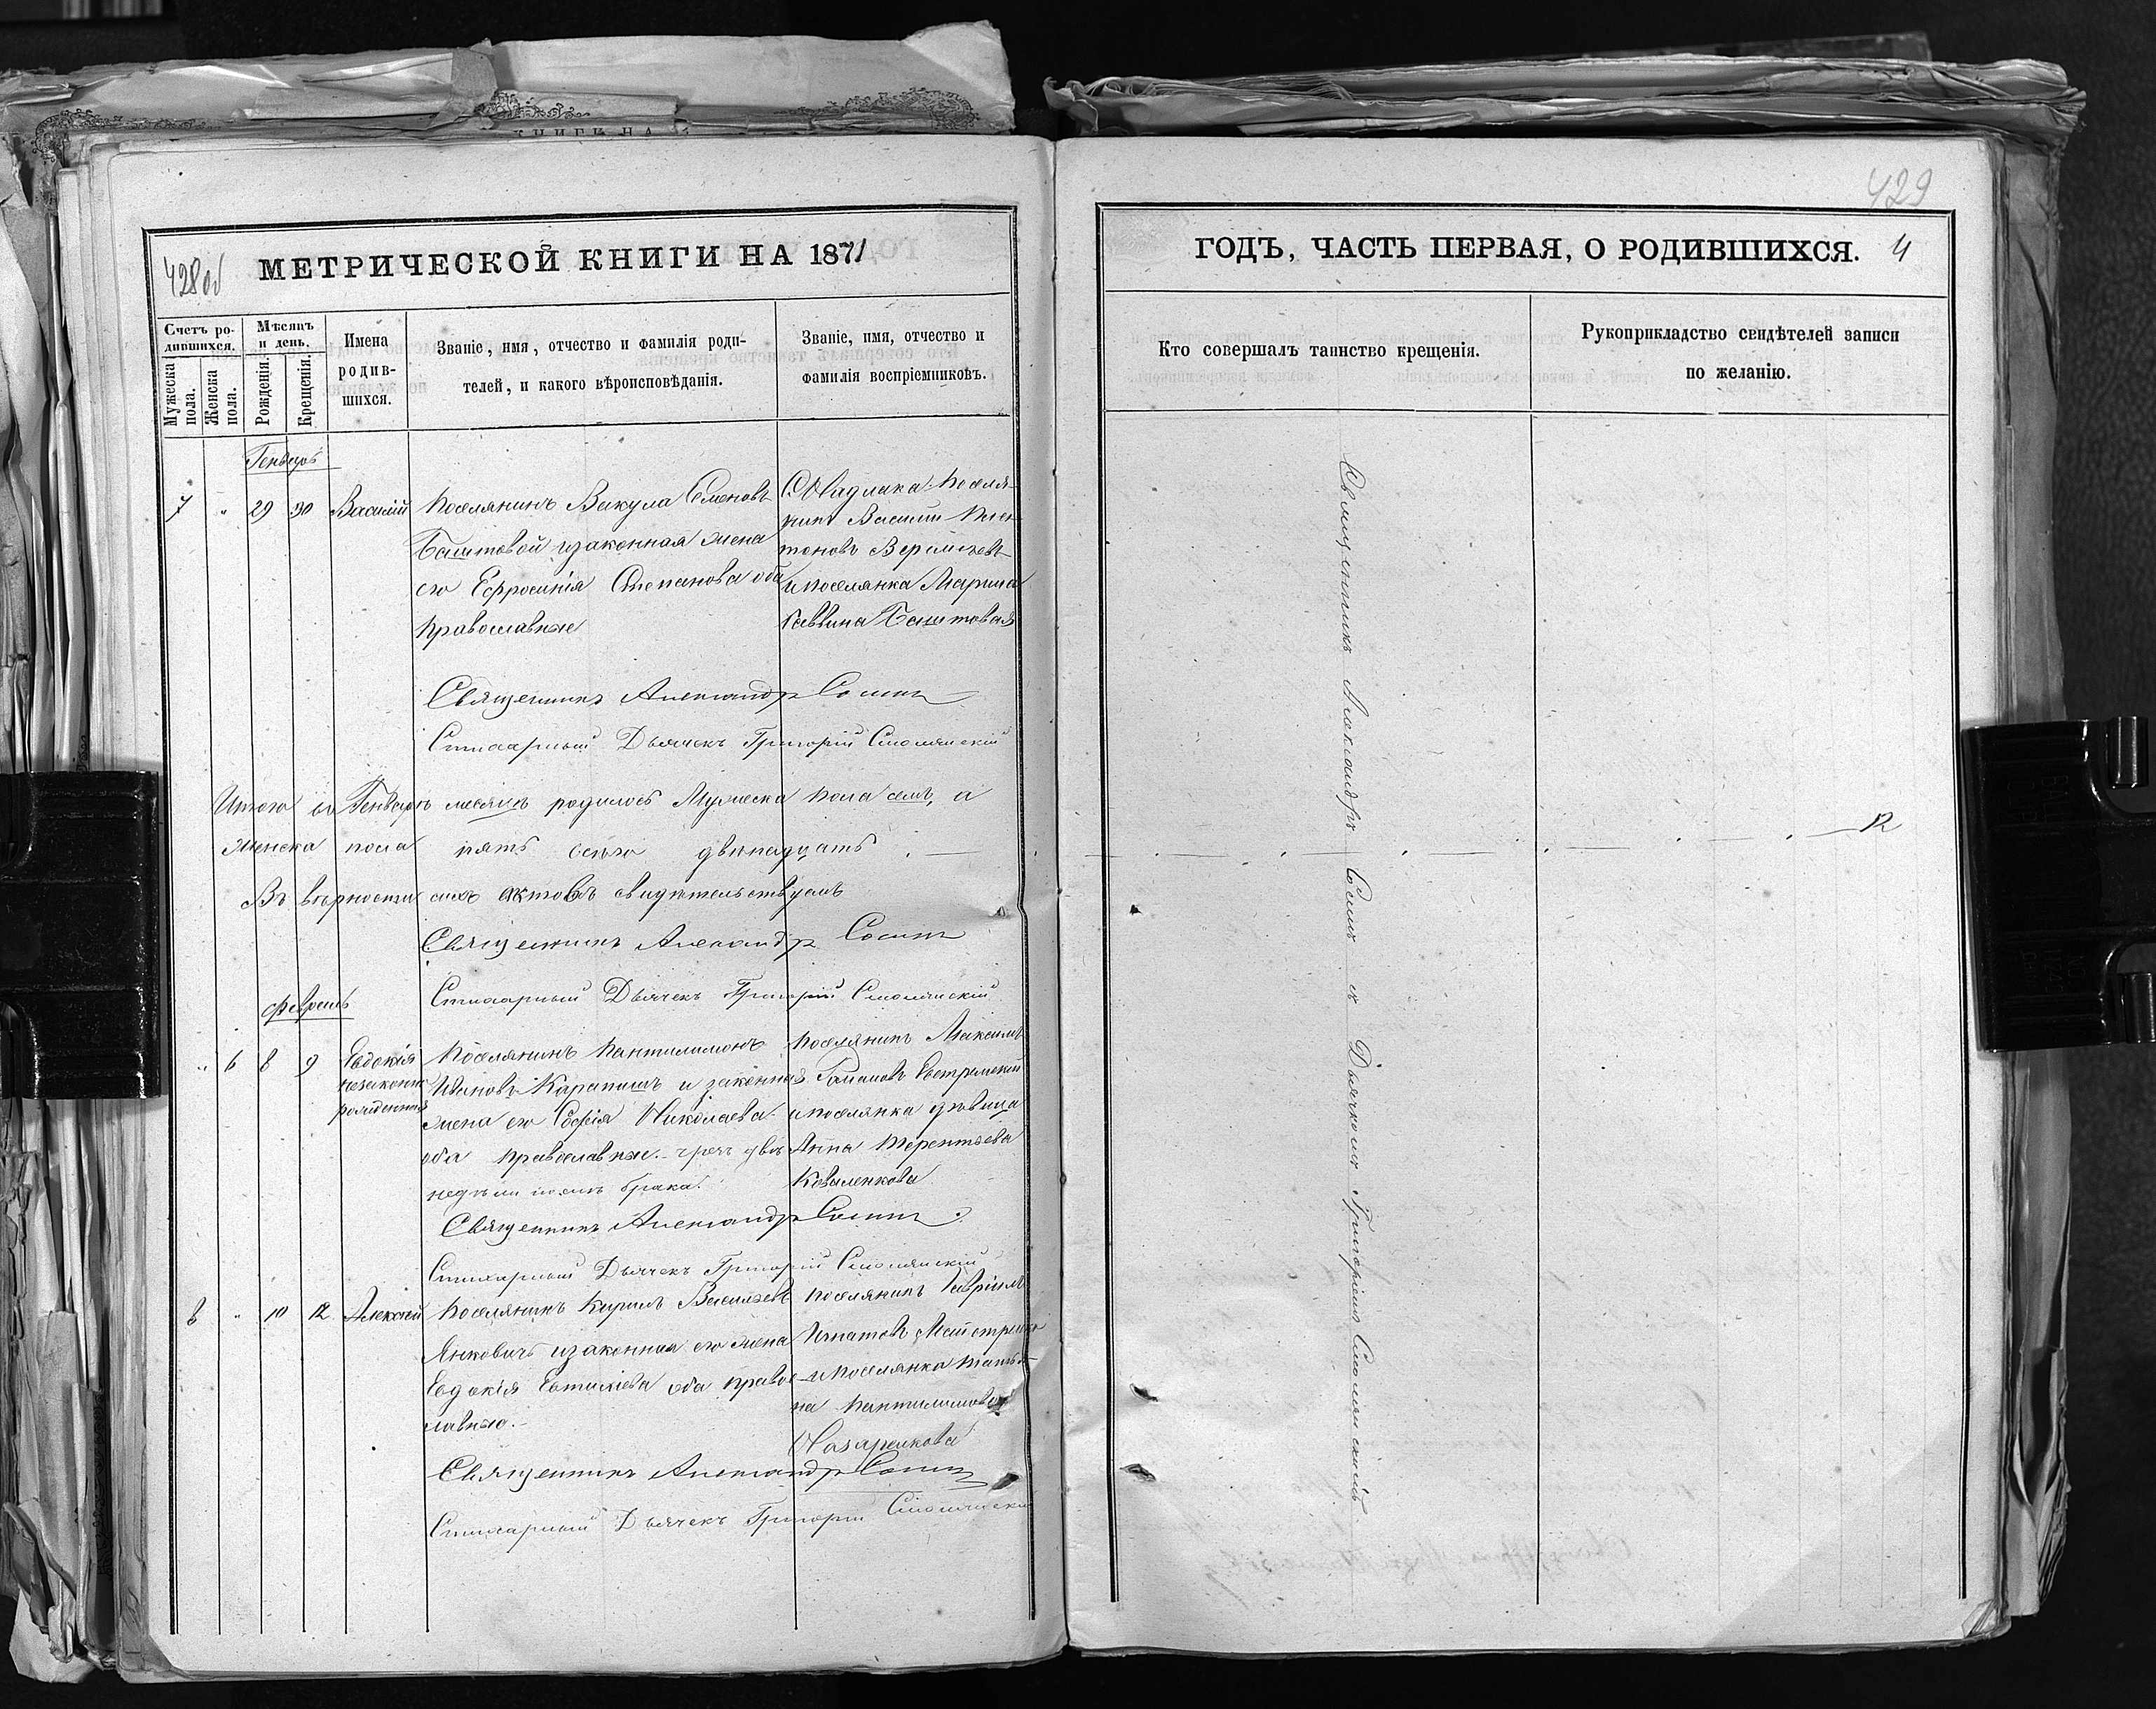 КНИГИ НА
428об
МЕТРИЧЕСКОЙ КНИГИ НА 1871
Счетъ ро-
дившихся.
Мужеска
пола.
Женска
пола.
Мѣсяцъ
и день.
Рожденія.
Крещенія.
Имена
родив-
шихся.
Званіе, имя, отчество и фамилія роди-
телей, и какого вѣроисповѣданія.
Званіе, имя, отчество и
фамилія воспріемниковъ.
Генварь
7 " 29 30 Василій
Поселянинъ Вакула Семеновъ
Баштовой и законная жена
его Ефросинія Степанова оба
православные
Поселя-
нинъ Василий
и поселянка Марина
Саввина Баштовая
Священникъ Александръ
Стихарный Дьячекъ Григорій Смолянскій
Итого въ Генварѣ месяцѣ родилось Мужеска пола семь, а
Женска пола пять всего двѣнадцать
Въ вѣрности сихъ актовъ свидѣтельствуемъ
Священникъ Александръ
Стихарный Дьячекъ Григорій Смолянскій
Февраль
" 6 8 9 Евдокія
незаконно
рожденная
Поселянинъ Пантилимонъ
Ивановъ Карапишъ и законная
жена его Софія Николаева
оба православные. чрезъ двѣ
недѣли послѣ брака.
Поселянинъ Максимъ
и поселянка дѣвица
Анна Терентьева
Коваленкова
Священникъ Александръ
Стихарный Дьячекъ Григорій Смолянскій
8 " 10 12 Алексѣй
Поселянинъ Кирилъ Васильевъ
Янковичъ и законная его жена
Евдокія Евтихіева оба право-
славные.
Поселянинъ Гавріилъ
Игнатовъ
и поселянка Татья-
на Пантилимонова
Назаренкова
Священникъ Александръ
Стихарный Дьячекъ Григорій Смолянскій
429
ГОДЪ, ЧАСТЬ ПЕРВАЯ, О РОДИВШИХСЯ. 4
Кто совершалъ таинство крещенія.
Рукоприкладство свидѣтелей записи
по желанію.
Священникъ Александръ съ Дьячкомъ Григоріемъ Смолянскимъ
12